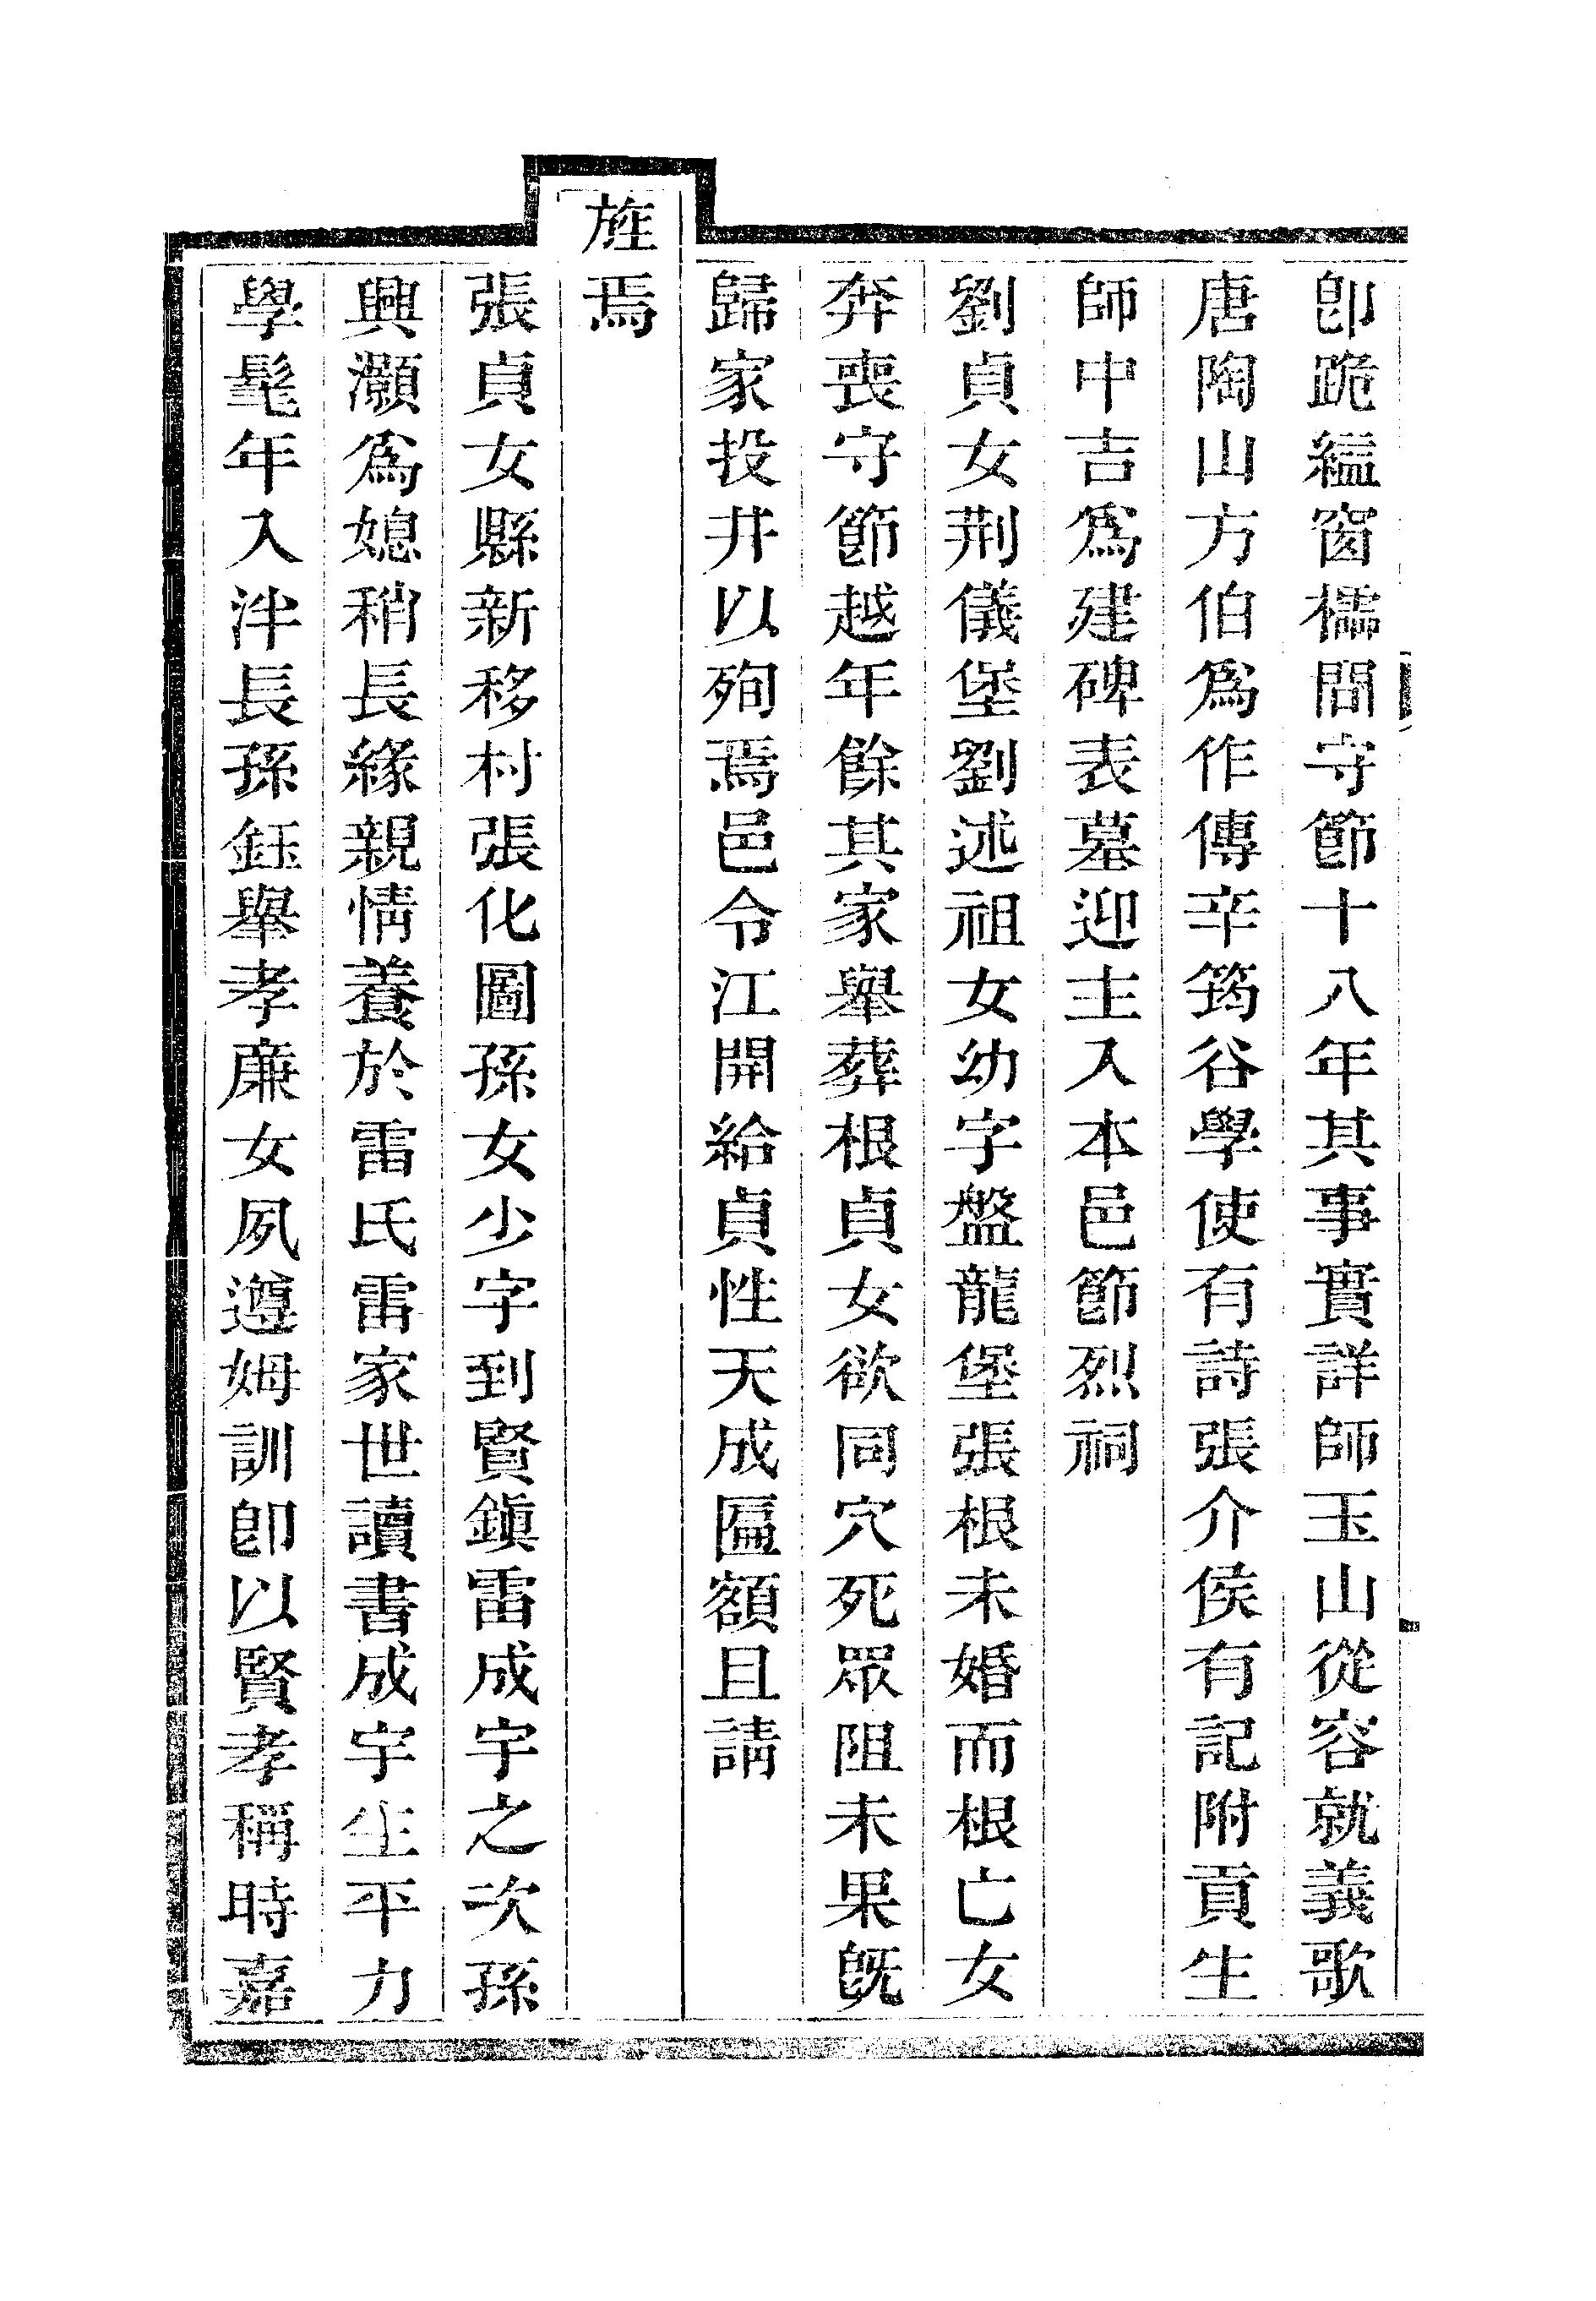 卽跪縊窗櫺間守節十八年其事實詳師玉山從容就義歌
唐陶山方伯爲作傳辛筠谷學使有詩張介侯有記附貢生
師中吉爲建碑表墓迎主入本邑節烈祠
劉貞女荆儀堡劉述祖女幼字盤龍堡張根未婚而根亡女
奔喪守節越年餘其家舉葬根貞女欲同穴死眾阻未果旣
歸家投井以殉焉邑令江開給貞性天成匾額且請
旌焉
張貞女縣新移村張化圖孫女少字到賢鎭雷成宇之次孫
興灝爲媳稍長緣親情養於雷氏雷家世讀書成宇生平力
學髦年入泮長孫鈺舉孝廉女夙遵姆訓卽以賢孝稱時嘉